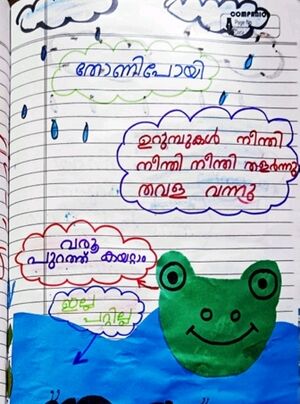 COMPANIO
തോണിപോയി
ഉറുമ്പുകൾ നീന്തി
നീന്തി നീന്തി തളർന്നു
തവള വന്നു
വരൂ
പുറത്ത് കയറ്റാം
ഇല്ല
പറ്റില്ല